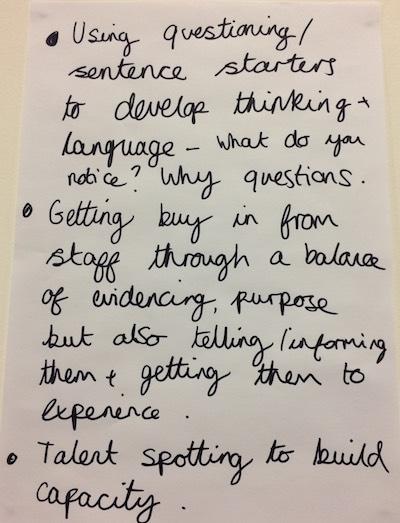 • Using questioning/
sentence starters
to develop thinking +
language – What do you
notice? Why questions.
• Getting buy in from
staff through a balance
of evidencing, purpose
but also telling/informing
them + getting them to
experience.
• Talent spotting to build
capacity.